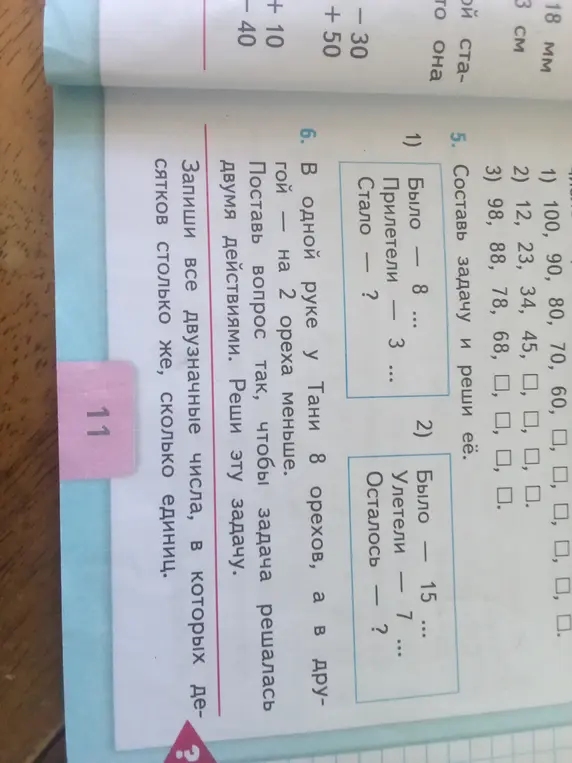 18 мм
3 см
ой ста-
то она
− 30
+ 50
+ 10
− 40
1) 100, 90, 80, 70, 60, □, □, □, □, □, □.
2) 12, 23, 34, 45, □, □, □, □.
3) 98, 88, 78, 68, □, □, □, □.
5. Составь задачу и реши её.
1) Было — 8 ...
Прилетели — 3 ...
Стало — ?
2) Было — 15 ...
Улетели — 7 ...
Осталось — ?
6. В одной руке у Тани 8 орехов, а в дру-
гой — на 2 ореха меньше.
Поставь вопрос так, чтобы задача решалась
двумя действиями. Реши эту задачу.
Запиши все двузначные числа, в которых де-
сятков столько же, сколько единиц.
?
11